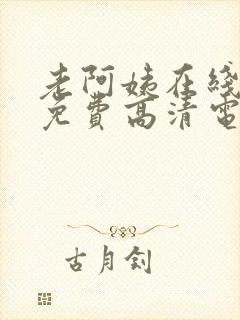 老阿姨在线
免费高清电
古月钊